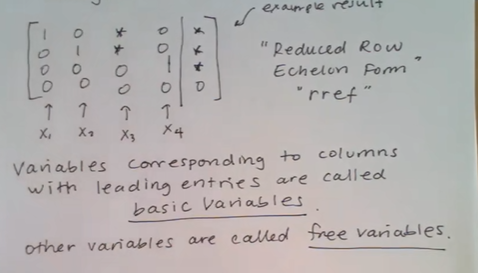 example result
1 0 * 0 *
0 1 * 0 *
0 0 0 1 *
0 0 0 0 0
↑ ↑ ↑ ↑
x₁ x₂ x₃ x₄
"Reduced Row
Echelon Form"
"rref"
Variables corresponding to columns
with leading entries are called
basic variables.
other variables are called free variables.